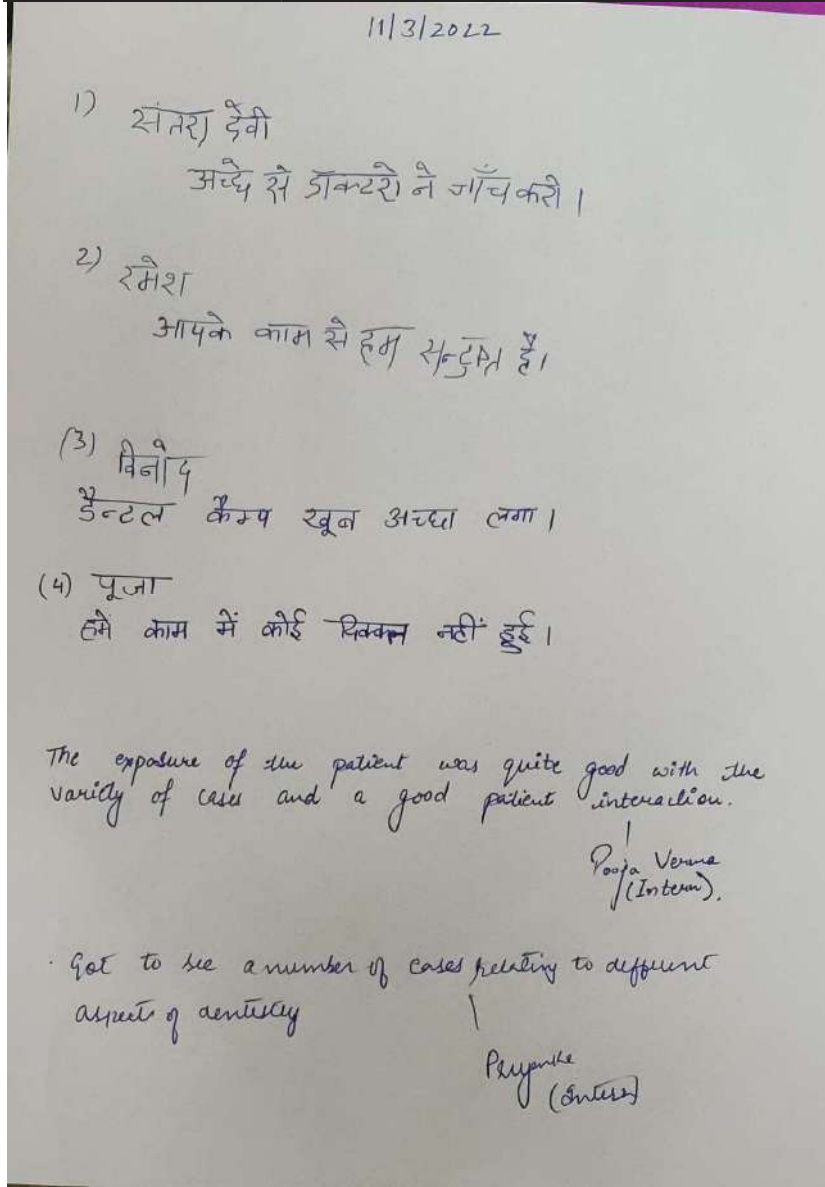 11/3/2022
1) संतरा देवी
अच्छे से डॉक्टरो ने जाँच करी।
2) रमेश
आपके काम से हम सन्टुष्त है।
(3) विनोद
डैन्टल कैम्प खूब अच्छा लगा।
(4) पूजा
हमें काम में कोई दिक्कत नहीं हुई।
The exposure of the patient was quite good with the
variety of cases and a good patient interaction.
Pooja Verma
(Intern).
Got to see a number of cases relating to different
aspects of dentistry
(Intern)